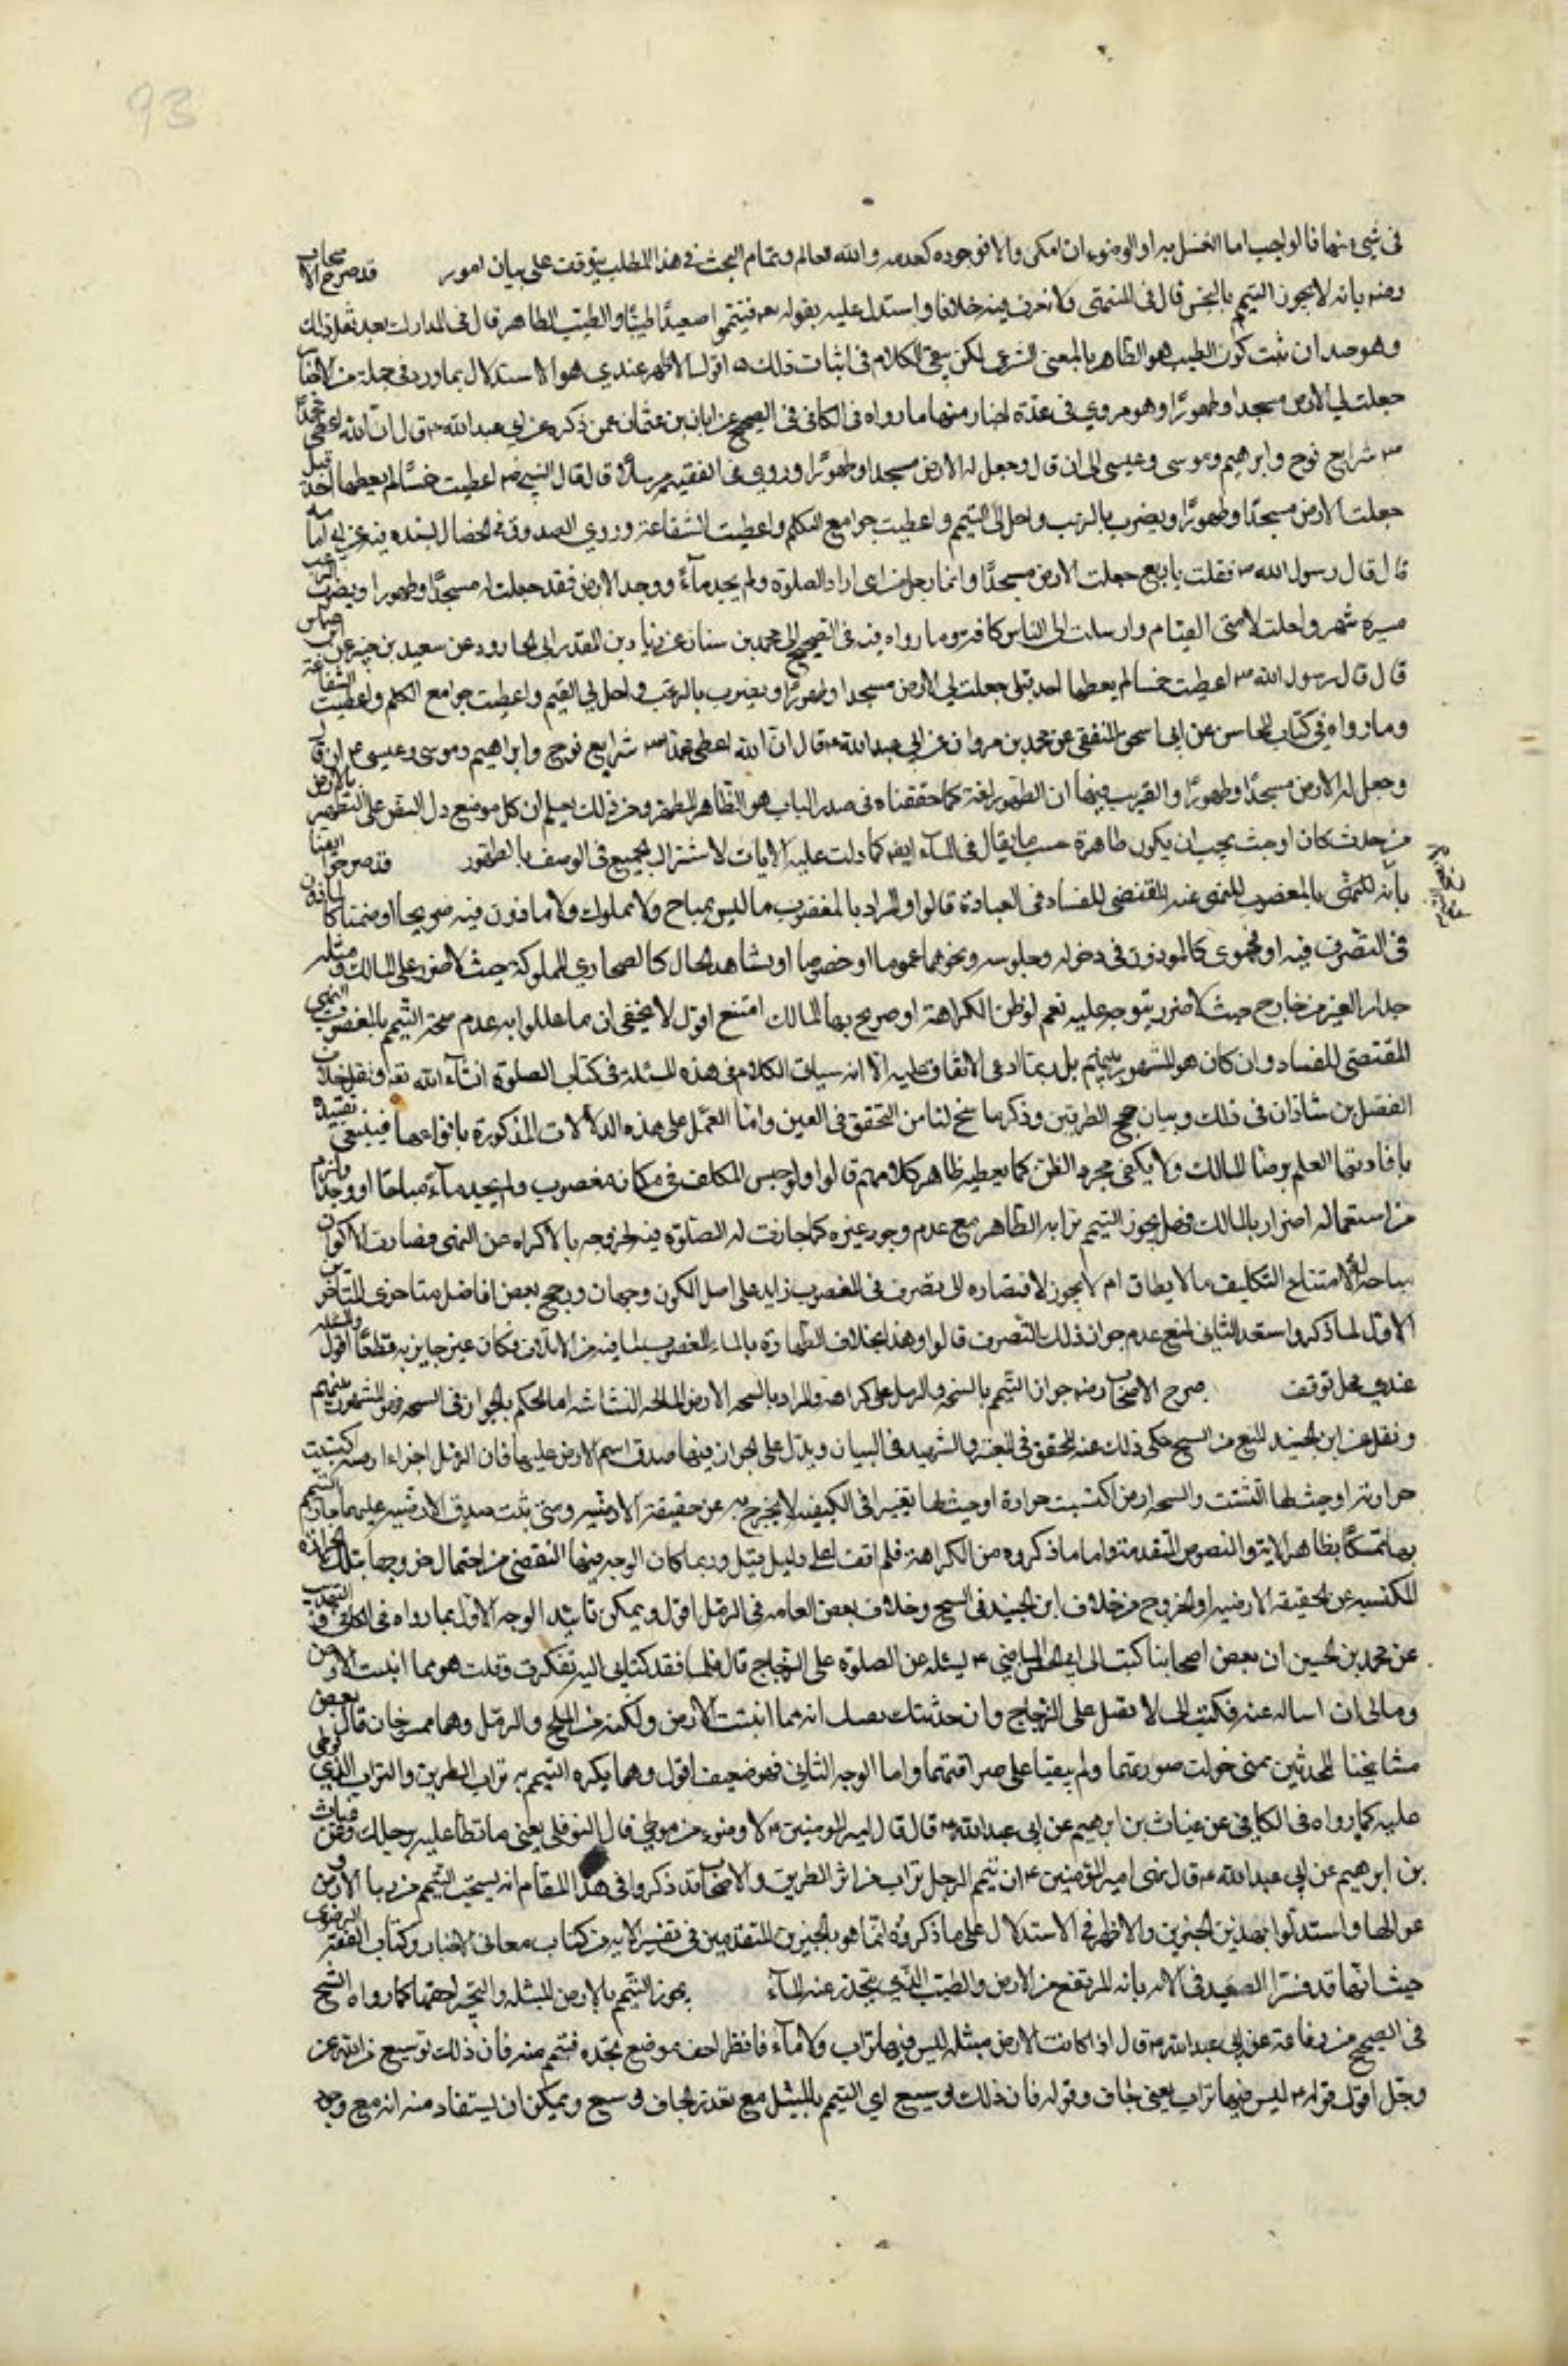 93
في شيء منهما فالواجب اما الغسل به او الوضوء ان امكن والا فوجوده كعدمه والله العالم وتمام البحث في هذا المطلب يتوقف على بيان امور قد صرح الاصحاب
رضه بانه لا يجوز التيمم بالنجس قال في المنتهى ولا نعرف فيه خلافا واستدل عليه بقوله تعه فتيمموا صعيدًا طيبًا والطيب الطاهر قال في المدارك بعد نقل ذلك
وهو جيد ان ثبت كون الطيب هو الطاهر بالمعنى الشرعي لكن يبقى الكلام في اثبات ذلك اقول الاظهر عندي هو الاستدلال بما ورد في جملة من الاخبا
جعلت لي الارض مسجدا وطهورًا وهو مروي في عدة اخبار منها ما رواه في الكافي في الصحيح عن ابان بن عثمان عمن ذكره عن ابي عبد الله ع قال ان الله اعطى محمدًا
ص شرايع نوح وابرهيم وموسى وعيسى الى ان قال وجعل له الارض مسجدا وطهورًا وروي في الفقيه مرسلا قال قال النبي ص اعطيت خمسًا لم يعطها احد قبلي
جعلت الارض مسجدًا وطهورًا ونصرت بالرعب واحل لي المغنم واعطيت جوامع الكلم واعطيت الشفاعة وروي الصدوق في الخصال بسنده فيه عن ابي امامه
قال قال رسول الله ص فضلت باربع جعلت الارض مسجدًا وايما رجل من امتي اراد الصلوة ولم يجد مآءً ووجد الارض فقد جعلت له مسجدًا وطهورا ونصرت بالرعب
مسيرة شهر واحلت لامتي الغنايم وارسلت الى الناس كافة وما رواه فيه في الصحيح الى محمد بن سنان عن زياد بن المنذر ابي الجارود عن سعيد بن جبير عن ابن عباس
قال قال رسول الله ص اعطيت خمسا لم يعطها احد قبلي جعلت لي الارض مسجدا وطهورًا ونصرت بالرعب واحل لي المغنم واعطيت جوامع الكلم واعطيت الشفاعة
وما رواه في كتاب المحاسن عن ابي اسحق الثقفي عن محمد بن مروان عن ابي عبد الله ع قال ان الله اعطى محمدًا ص شرايع نوح وابراهيم وموسى وعيسى ع الى ان قال
وجعل له الارض مسجدًا وطهورًا والتقريب فيها ان الطهور لغة كما حققناه في صدر الباب هو الطاهر المطهر ومن ذلك يعلم ان كل موضع دل النص على التطهير بالارض
من حدث كان او خبث يجب ان يكون طاهرة حسب ما يقال في المآء ايض كما دلت عليه الايات لاشتراك الجميع في الوصف بالطهور قد صرحوا ايضا
بانه لا يصح بالمغصوب للنهي عنه المقتضي للفساد في العبادة قالوا والمراد بالمغصوب ما ليس بمباح ولا مملوك ولا ماذون فيه صريحا او ضمنا كالماذون
في التصرف فيه او فحوى كالموذون في دخوله وجلوسه ونحوهما عموما او خصوصا او بشاهد الحال كالصحاري المملوكة حيث لا ضرر على المالك ومثله
جدار الغير من خارج حيث لا ضرر يتوجه عليه نعم لو ظن الكراهة او صرح بها المالك امتنع اقول لا يخفى ان ما عللوا به عدم صحة التيمم بالمغصوب من النهي
المقتضي للفساد وان كان هو المشهور بينهم بل ربما ادعى الاتفاق عليه الا انه سياتي الكلام في هذه المسئلة في كتاب الصلوة انشآء الله تعه ونقل خلاف
الفضل بن شاذان في ذلك وبيان حجج الطرفين وذكر ما سنح لنا من التحقيق في البين واما العمل على هذه الدلالات المذكورة بانواعها فينبغي تقييده
بافادتها العلم برضا المالك ولا يكفي مجرد الظن كما يعطيه ظاهر كلامهم قالوا ولو حبس المكلف في مكان مغصوب ولم يجد مآءً مباحًا او وجد ولزم
من استعماله اضرار بالمالك فهل يجوز التيمم بترابه الطاهر مع عدم وجود غيره كما جازت له الصلوة فيه لخروجه بالاكراه عن النهي فصارت الاكوان
مباحة له لامتناع التكليف ما لا يطاق ام لا يجوز لافتقاره الى تصرف في المغصوب زايد على اصل الكون وجهان ورجح بعض افاضل متاخري المتاخرين
الاول لما ذكر واستبعد الثاني لمنع عدم جواز ذلك التصرف قالوا وهذا بخلاف الطهارة بالماء المغصوب لما فيه من الاتلاف فكان غير جايز به قطعًا اقول والمسئله
عندي محل توقف صرح الاصحاب رضه جواز التيمم بالسبخة والرمل على كراهة والمراد بالسبخه الارض المالحة النشاشه اما الحكم بالجواز في السبخه فهو المشهور بينهم
ونقل عن ابن الجنيد المنع من السبخ حكى ذلك عنه المحقق في المعتبر والشهيد في البيان ويدل على الجواز فيهما صدق اسم الارض عليهما فان الرمل اجزاء ارضيه اكتسبت
حرارة او جبت لها التشتت والسبخه ارض اكتسبت حرارة اوجبت لها تغيرا في الكيفيه لا يخرج به عن حقيقة الارضيه ومتى ثبت صدق الارضيه عليهما جاز التيمم
بهما تمسكًا بظاهر الاية والنصوص المتقدمة واما ما ذكروه من الكراهة فلم اقف له على دليل قيل وربما كان الوجه فيها التفصي من احتمال خروجها بتلك الحرارة
المكتسبه عن الحقيقة الارضيه او الخروج من خلاف ابن الجنيد في السبخ وخلاف بعض العامه في الرمل اقول ويمكن تاييد الوجه الاول بما رواه في الكافي والتهذيب
عن محمد بن الحسين ان بعض اصحابنا كتب الى ابي الحسن الماضي ع يسئله عن الصلوة على الزجاج قال فلما نفد كتابي اليه تفكرت وقلت هو مما انبتت الارض
وما لي ان اساله عنه فكتب الي لا تصل على الزجاج وان حدثتك نفسك انه مما انبتت الارض ولكنه من الملح والرمل وهما ممسوخان قال بعض
مشايخنا المحدثين يعني حولت صورتهما ولم يبقيا على صرافتهما واما الوجه الثاني فهو ضعيف اقول ومما يكره التيمم به تراب الطريق والتراب الذي يوطى
عليه كما رواه في الكافي عن غياث بن ابرهيم عن ابي عبد الله ع قال قال امير المومنين ع لا وضوء من موطى قال النوفلي يعني ما تطأ عليه برجلك وعن غياث
بن ابرهيم عن ابي عبد الله ع قال نهى امير المؤمنين ع ان يتيمم الرجل بتراب من اثر الطريق والاصحاب قد ذكروا في هذا المقام انه يستحب التيمم من ربا الارض و
عواليها واستدلوا بهذين الخبرين والاظهر في الاستدلال على ما ذكروه انما هو بالخبرين المتقدمين في تفسير الاية من كتاب معاني الاخبار وكتاب الفقه الرضوي
حيث انهما قد فسرا الصعيد في الايه بانه المرتفع من الارض والطيب الذي ينحدر عنه المآء يجوز التيمم بالارض المبتله والتحري لاجفها كما رواه الشيخ
في الصحيح من رفاعة عن ابي عبد الله ع قال اذا كانت الارض مبتله ليس فيها تراب ولا مآء فانظر اجف موضع تجده فتيمم منه فان ذلك توسيع من الله عز
وجل اقول قوله ع ليس فيها تراب يعني جاف وقوله فان ذلك توسيع اي التيمم بالمبتل مع تعذر الجاف توسيع ويمكن ان يستفاد منه انه مع وجود